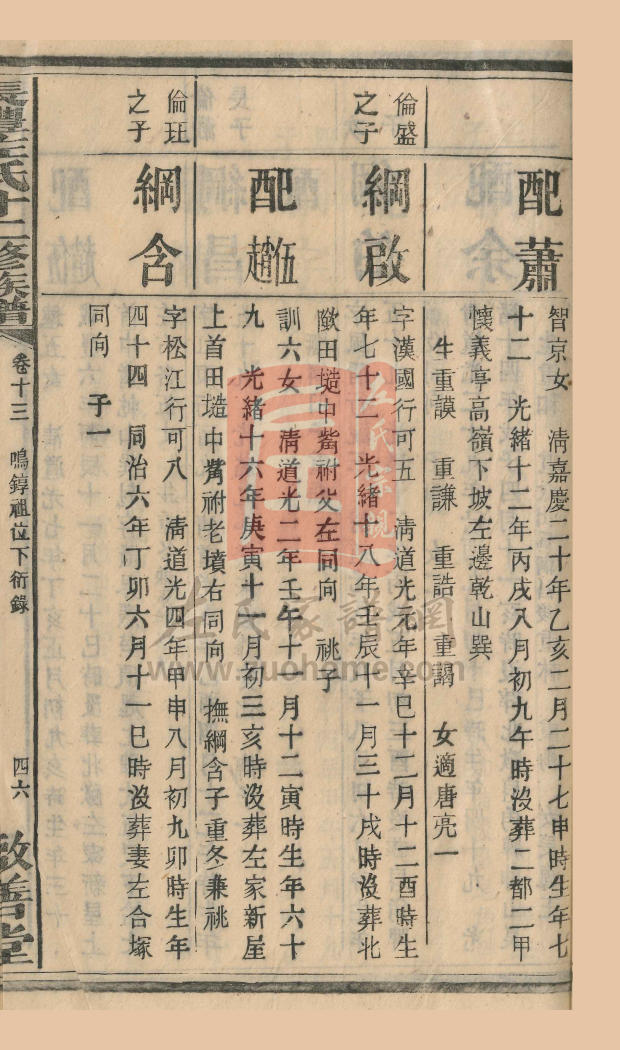 配蕭
智京女　清嘉慶二十年乙亥二月二十七申時生年七
十二　光緒十二年丙戌八月初九午時沒葬二都二甲
懷義亭高嶺下坡左邊乾山巽
生重謨　重謙　重誥　重謁　女適唐亮一
倫盛
之子
綱啟
字漢國行可五　清道光元年辛巳十二月十二酉時生
年七十二　光緒十八年壬辰十一月三十戌時沒葬北
歐田塏中觜祔父左同向　祧子
配趙伍
訓六女　清道光二年壬午十一月十二寅時生年六十
九　光緒十六年庚寅十一月初三亥時沒葬左家新屋
上首田塏中觜祔老墳右同向　撫綱含子重冬兼祧
倫珏
之子
綱含
字松江行可八　清道光四年甲申八月初九卯時生年
四十四　同治六年丁卯六月十一巳時沒葬妻左合塚
同向　子一
長豐左氏十二修族譜
卷十三　鳴錞祖位下衍錄
四六
敦善堂
左氏宗親
左氏家譜網
www.zuohome.com